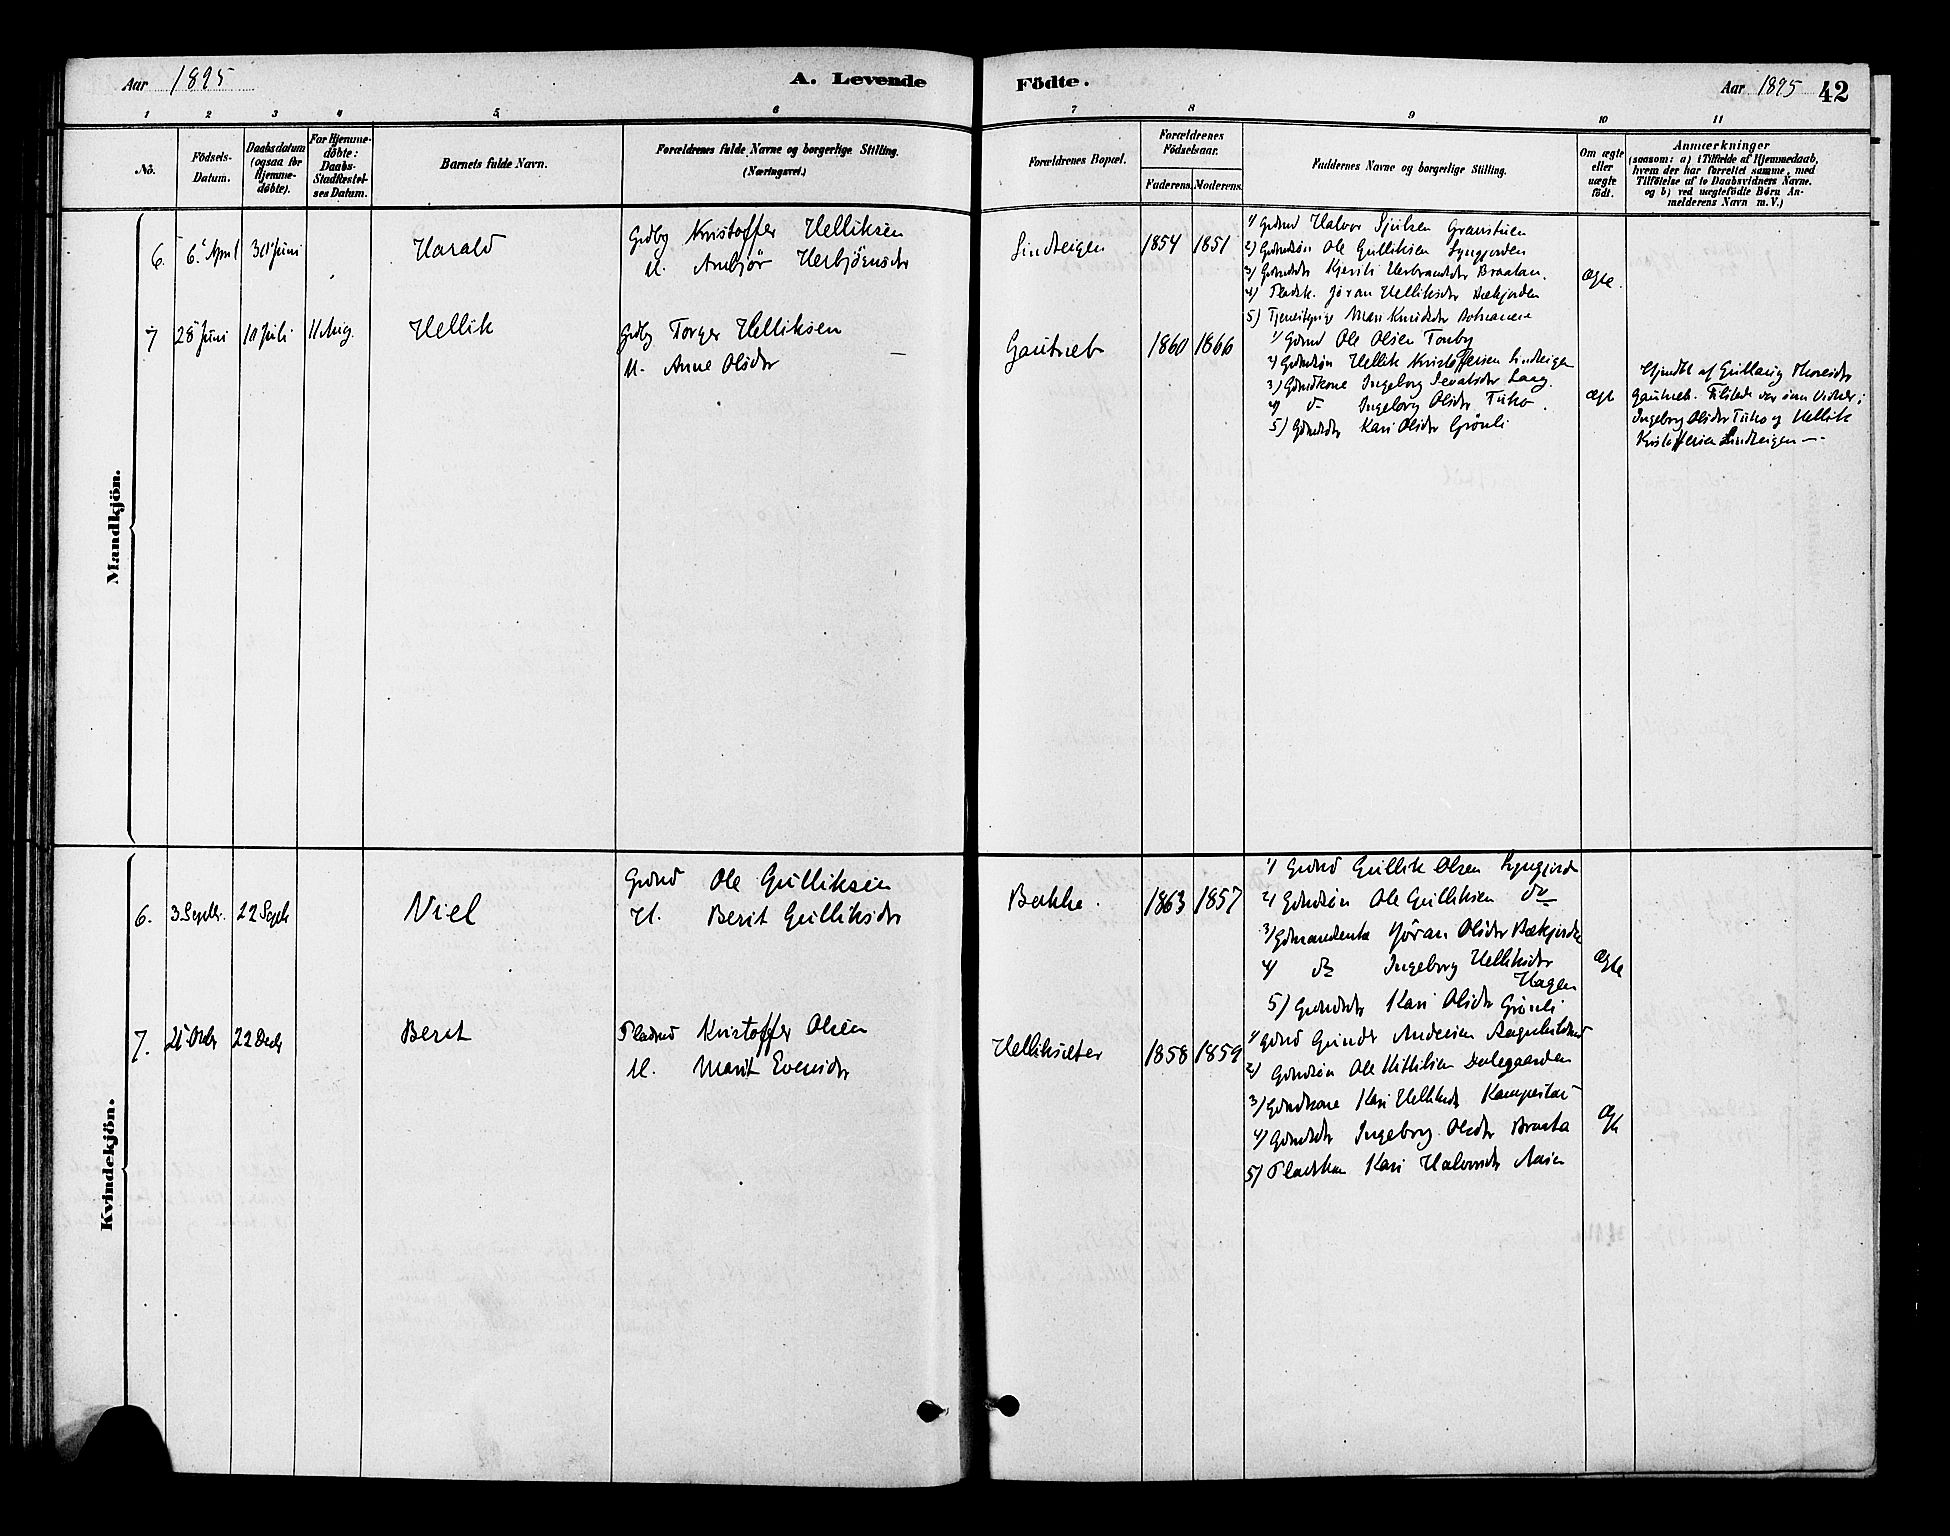 Aar 1895
A. Levende
Födte.
Aar 1895
42
1 2 3 4 5. 6 7 8 9 10 11
No.
Födsels-Datum.
Daabsdatum (ogsaa for Hjemme-döbte).
For Hjemme-döbte: Daabs-Stadfæstel-ses Datum.
Barnets fulde Navn.
Forældrenes fulde Navne og borgerlige Stilling. (Næringsvei.)
Forældrenes Bopæl.
Forældrenes Födselsaar.
Faderens. Moderens.
Faddernes Navne og borgerlige Stilling.
Om ægte eller uægte födt.
Anmærkninger
(saasom: a) i Tilfælde af Hjemmedaab,
hvem der har forrettet samme, med
Tilföielse af to Daabsvidners Navne.
og b) ved uægtefödte Börn An-
melderens Navn m. V.)
Mandkjön.
6. 6 April 30 Juni
Harald
Gdbg Kristoffer Helliksen
H. Ambjør Herbjørnsdr
Lindteigen 1854 1851
1) Gdmd Halvor Sjulsen Granstuen
2) Gdmdsøn Ole Gulliksen Lyngjorden
3) Gdmdsdr Kjersti Herbrandsdr Braatan.
4) Pladsk. Jøran Helliksdr Bækjorden
5) Tjenestepige Mari Knudsdr
Ægte.
7 28 Juni 10 Juli 11 Aug.
Hellik
Gdbg Torger Helliksen
H. Anne Olsdr
Gautneb 1860 1866
1) Gdmd Ole Olsen Fonby
2) Gdmdsøn Hellik Kristoffersen Lindteigen
3) Gdmdkone Ingeborg Sevatsdr Laag.
4) do Ingeborg Olsdr Tuko.
5) Gdmdsdr Kari Olsdr Grønli
ægte
Hjemdbt af Gunhild Thoresdr
Gautneb. Tilstede var som Vidner:
Ingeborg Olsdr Tuko og Hellik
Kristoffersen Lindteigen —
Kvindekjön.
6. 3 Septbr. 22 Septb
Niel
Gdmd Ole Gulliksen
H. Berit Gulliksdr
Bakke. 1863 1857
1) Gdmd Gullik Olsen Lyngjorde
2) Gdmdsøn Ole Gulliksen do
3) Gdmandenke Jøran Olsdr Bækjorden
4) do Ingeborg Helliksdr
Hagen
5) Gdmdsdr Kari Olsdr Grønli
Ægte
7. 22 Decbr
Berit
Pladsmd Kristoffer Olsen
H. Marit Evensdr
Helliksæter 1858 1859
1) Gdmd Gunder Andersen
2) Gdmdsøn Ole Kittilsen Dalegaarden
3) Gdmdkone Kari Helliksdr Kampestad
4) Gdmdsdr Ingeborg Olsdr Braata
5) Pladskon Kari Halvorsdr Aasen
Ægte